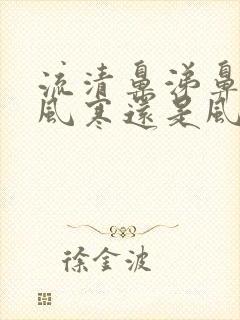 流清鼻涕鼻
風寒還是風
徐金波